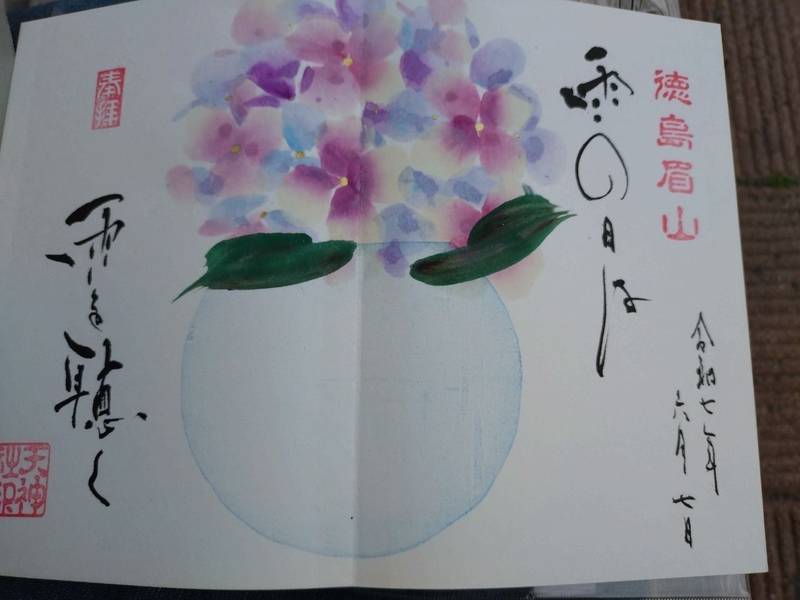 徳島眉山
雨の日は
令和七年
六月七日
奉拝
雨を聽く
天神社印